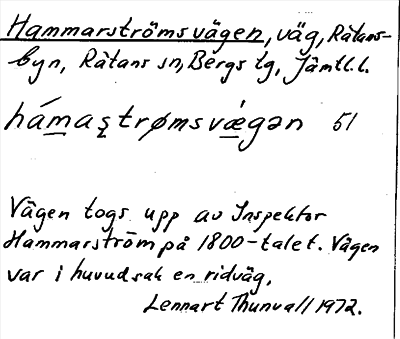 Hammarströmsvägen, väg, Rätans-
byn, Rätans sn, Bergs tg, Jämtl. l.
hámaʂtrømsvǽgən 51
Vägen togs upp av Inspektor
Hammarström på 1800-talet. Vägen
var i huvudsak en ridväg.
Lennart Thunvall 1972.